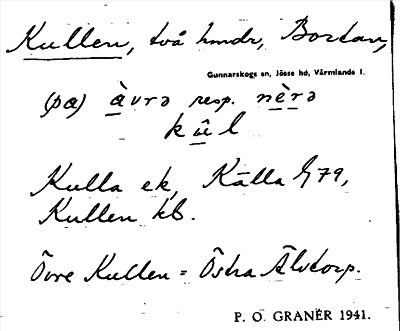 Kullen, två hmdr, Bortan,
Gunnarskogs sn, Jösse hd, Värmlands l.
(pœ) àvrə resp. nèrə
kûl
Kulla ek, Källa G79,
Kullen kb.
Övre Kullen = Östra Älvtorp.
P. O. GRANÉR 1941.